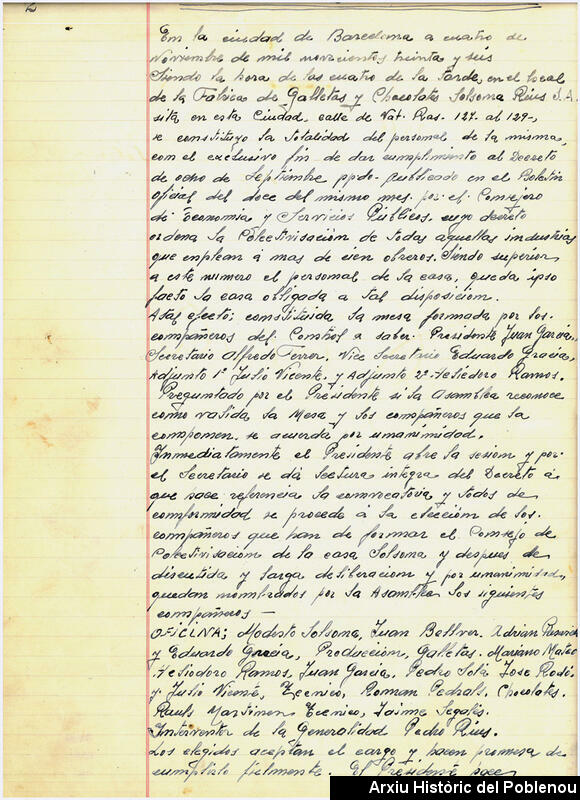 2
En la ciudad de Barcelona a cuatro de
Noviembre de mil novecientos treinta y seis
Siendo la hora de las cuatro de la tarde, en el local
de la Fábrica de Galletas y Chocolates Solsona Rius S.A.
sita en esta Ciudad, calle de Nat. Ras. 127. al 129-,
se constituyo la totalidad del personal de la misma,
con el exclusivo fin de dar cumplimiento al Decreto
de ocho de Septiembre ppdo. publicado en el Boletin
oficial del doce del mismo mes. por el Consejero
de Economia y Servicios Públicos, cuyo decreto
ordena la Colectivisación de todas aquellas industrias
que emplean á mas de cien obreros. Siendo superior
a este numero el personal de la casa, queda ipso
facto la casa obligada a tal disposicion.
A tal efecto; constituida la mesa formada por los
compañeros del Control a saber. Presidente Juan Garcia,
Secretario Alfredo Ferrer. Vice Secretario Eduardo Gracia.
Adjunto 1º Julio Vicente. y Adjunto 2º. Heliódoro Ramos.
Preguntado por el Presidente si la Asamblea reconoce
como valida la Mesa y los compañeros que la
componen. se acuerda por unanimidad.
Inmediatamente el Presidente abre la sesion y por
el Secretario se dá lectura integra del Decreto á
que hace referencia la convocatoria y todos de
conformidad se procede á la elección de los
compañeros que han de formar el Consejo de
Colectivisacion de la casa Solsona y despues de
discutida y larga deliberacion y por unanimidad,
quedan nombrados por la Asamblea los siguientes
compañeros —
OFICINA; Modesto Solsona, Juan Bellver. Adrian
y Eduardo Gracia, Produccion, Galletas. Mariano Mateo
Heliodoro Ramos, Juan Garcia, Pedro Solá Jose Rodó.
y Julio Vicente, Tecnico, Roman Pedrals, Chocolates.
Raul Martinez Tecnico, Jaime Segalés.
Interventor de la Generalidad Pedro Rius.
Los elegidos aceptan el cargo y hacen promesa de
cumplirlo fielmente. El Presidente hace
Arxiu Històric del Poblenou